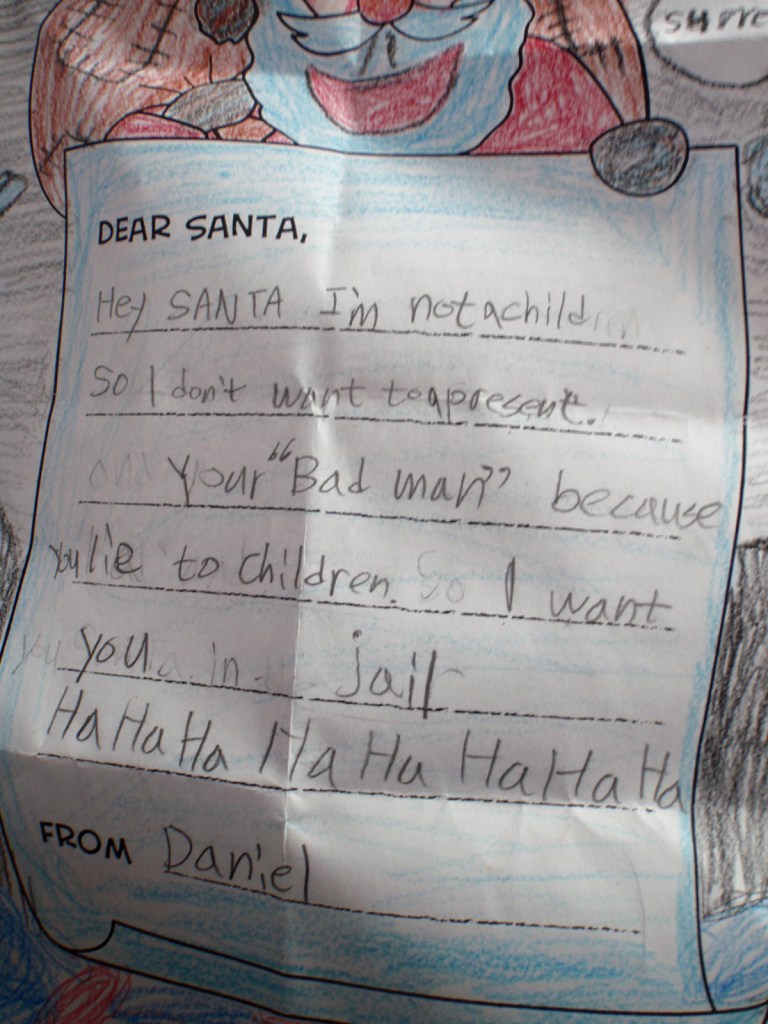 DEAR SANTA,
Hey SANTA I'm not a child
So I don't want to a present.
Your "Bad man" because
you lie to children. So I want
you in jail
Ha Ha Ha Ha Ha Ha Ha Ha
FROM Daniel